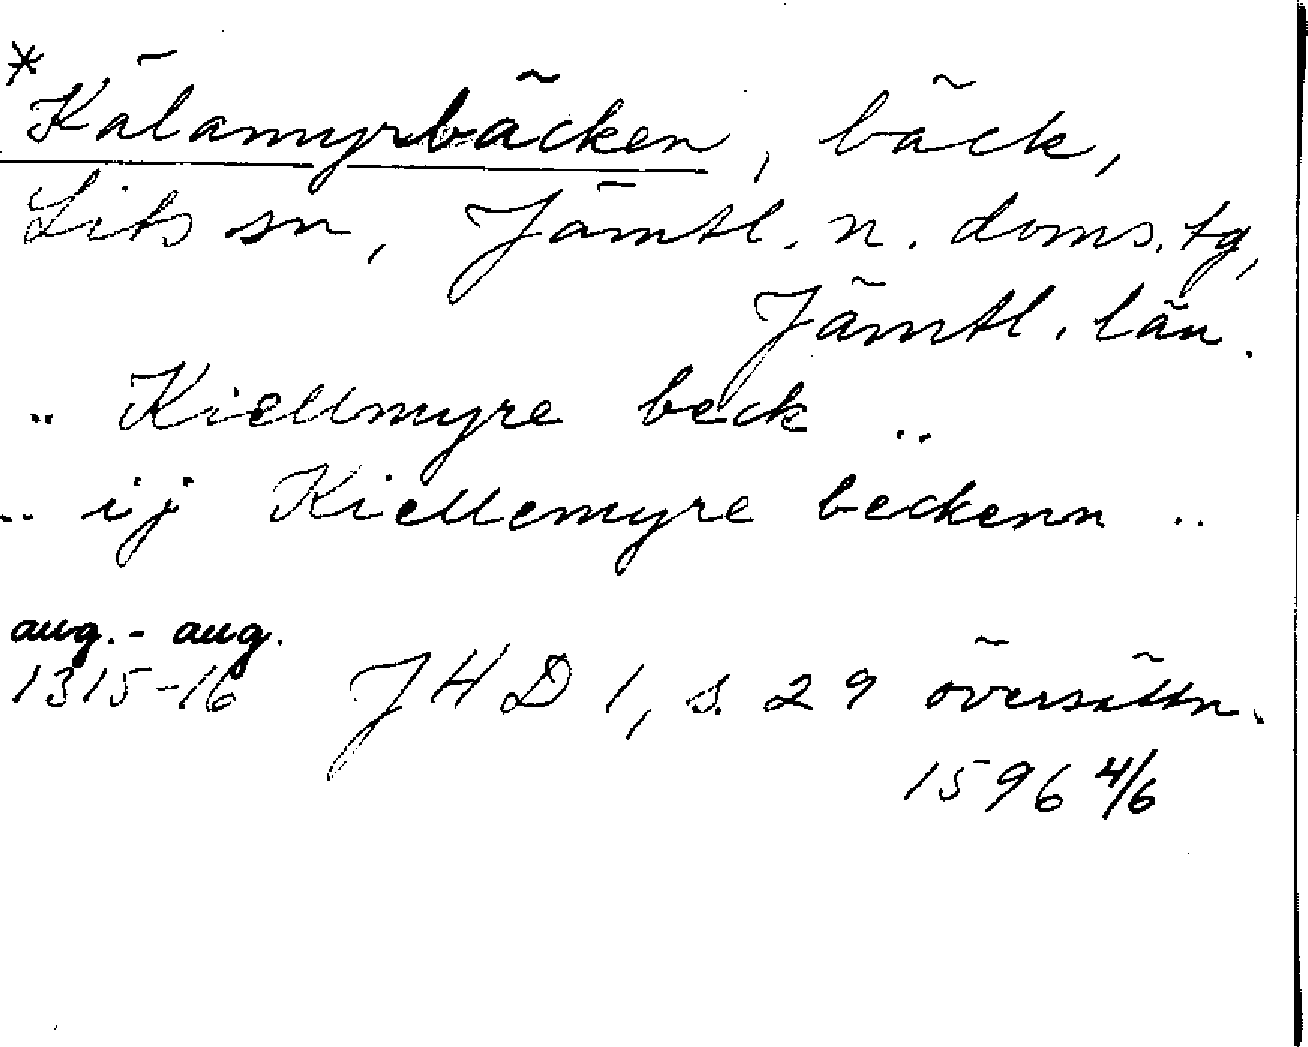 *Källamyrbäcken, bäck,
Lits sn, Jämtl. n. doms. tg,
Jämtl. län.
.. Kiellmyre beck ..
.. ij Kiellemyre beckenn ..
aug. - aug.
1315-16 JHD 1, s. 29 översättn.
1596 4/6